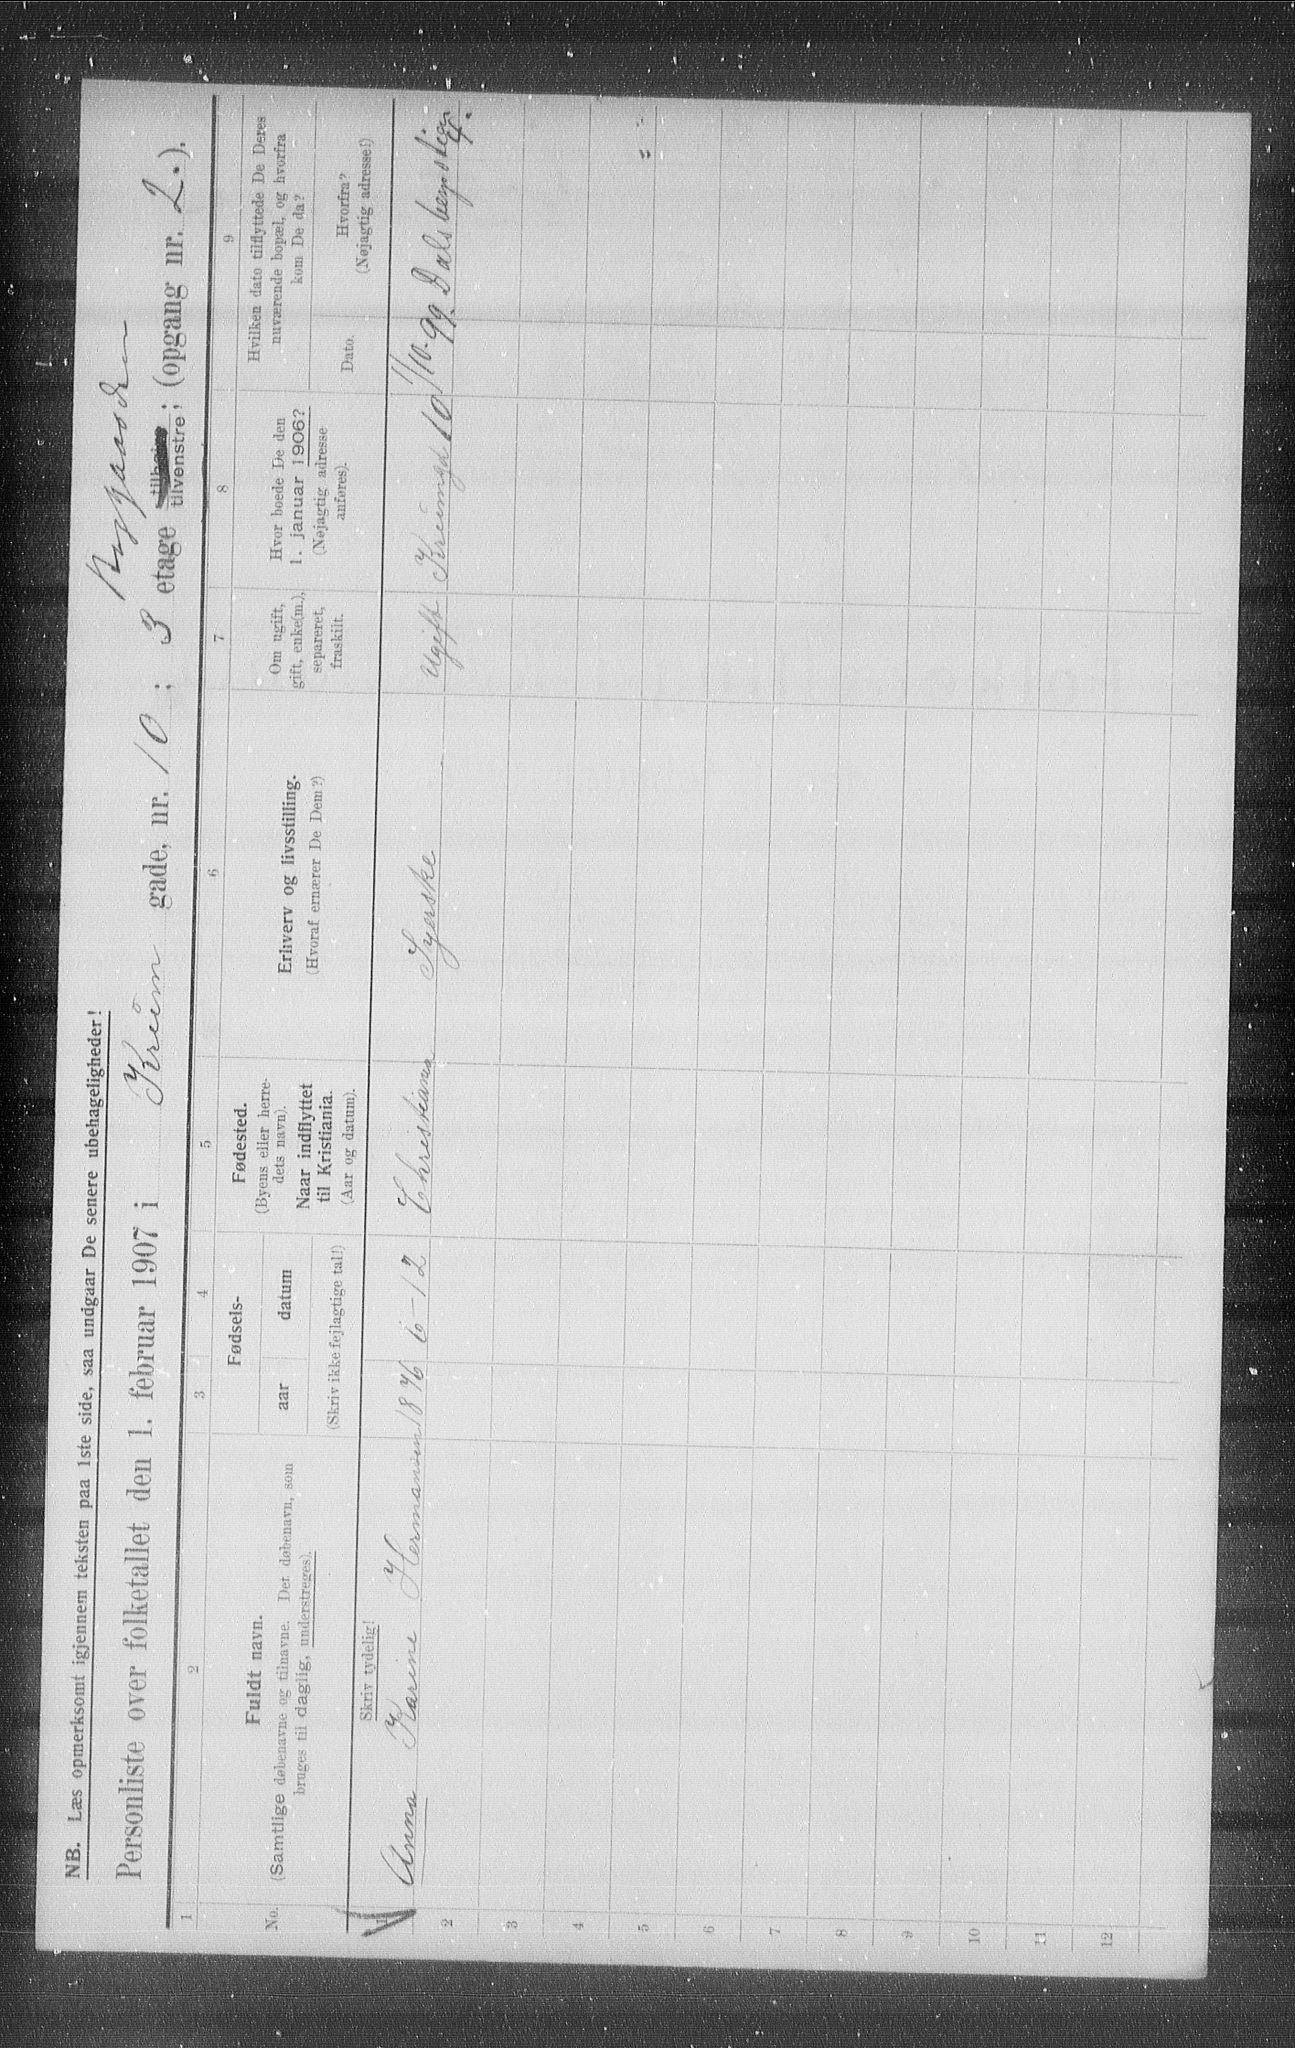 NB. Læs opmerksomt igjennem teksten paa 1ste side, saa undgaar De senere ubehageligheder!
Personliste over folketallet den 1. februar 1907 i Kruim gade, nr. 10 ; 3 etage tilvenstre; (opgang nr. 2.).
1 2 3 4 5 6 7 8 9
No.
Fuldt navn.
(Samtlige døbenavne og tilnavne. Det døbenavn, som
bruges til daglig, understreges).
Skriv tydelig!
Fødsels-
aar datum
(Skriv ikke fejlagtige tal!)
Fødested.
(Byens eller herre-
dets navn).
Naar indflyttet
til Kristiania.
(Aar og datum).
Erhverv og livsstilling.
(Hvoraf ernærer De Dem?)
Om ugift,
gift, enke(m.),
separeret,
fraskilt.
Hvor boede De den
1. januar 1906?
(Nøjagtig adresse
anføres).
Hvilken dato tilflyttede De Deres
nuværende bopæl, og hvorfra
kom De da?
Dato.
Hvorfra?
(Nøjagtig adresse!)
1 Anna Karine Hermansen 1876 6-12 Christiania Syerske Ugift Kruimgd 10 1/10-99. Dalsbergstigen 4.
2
3
4
5
6
7
8
9
10
11
12